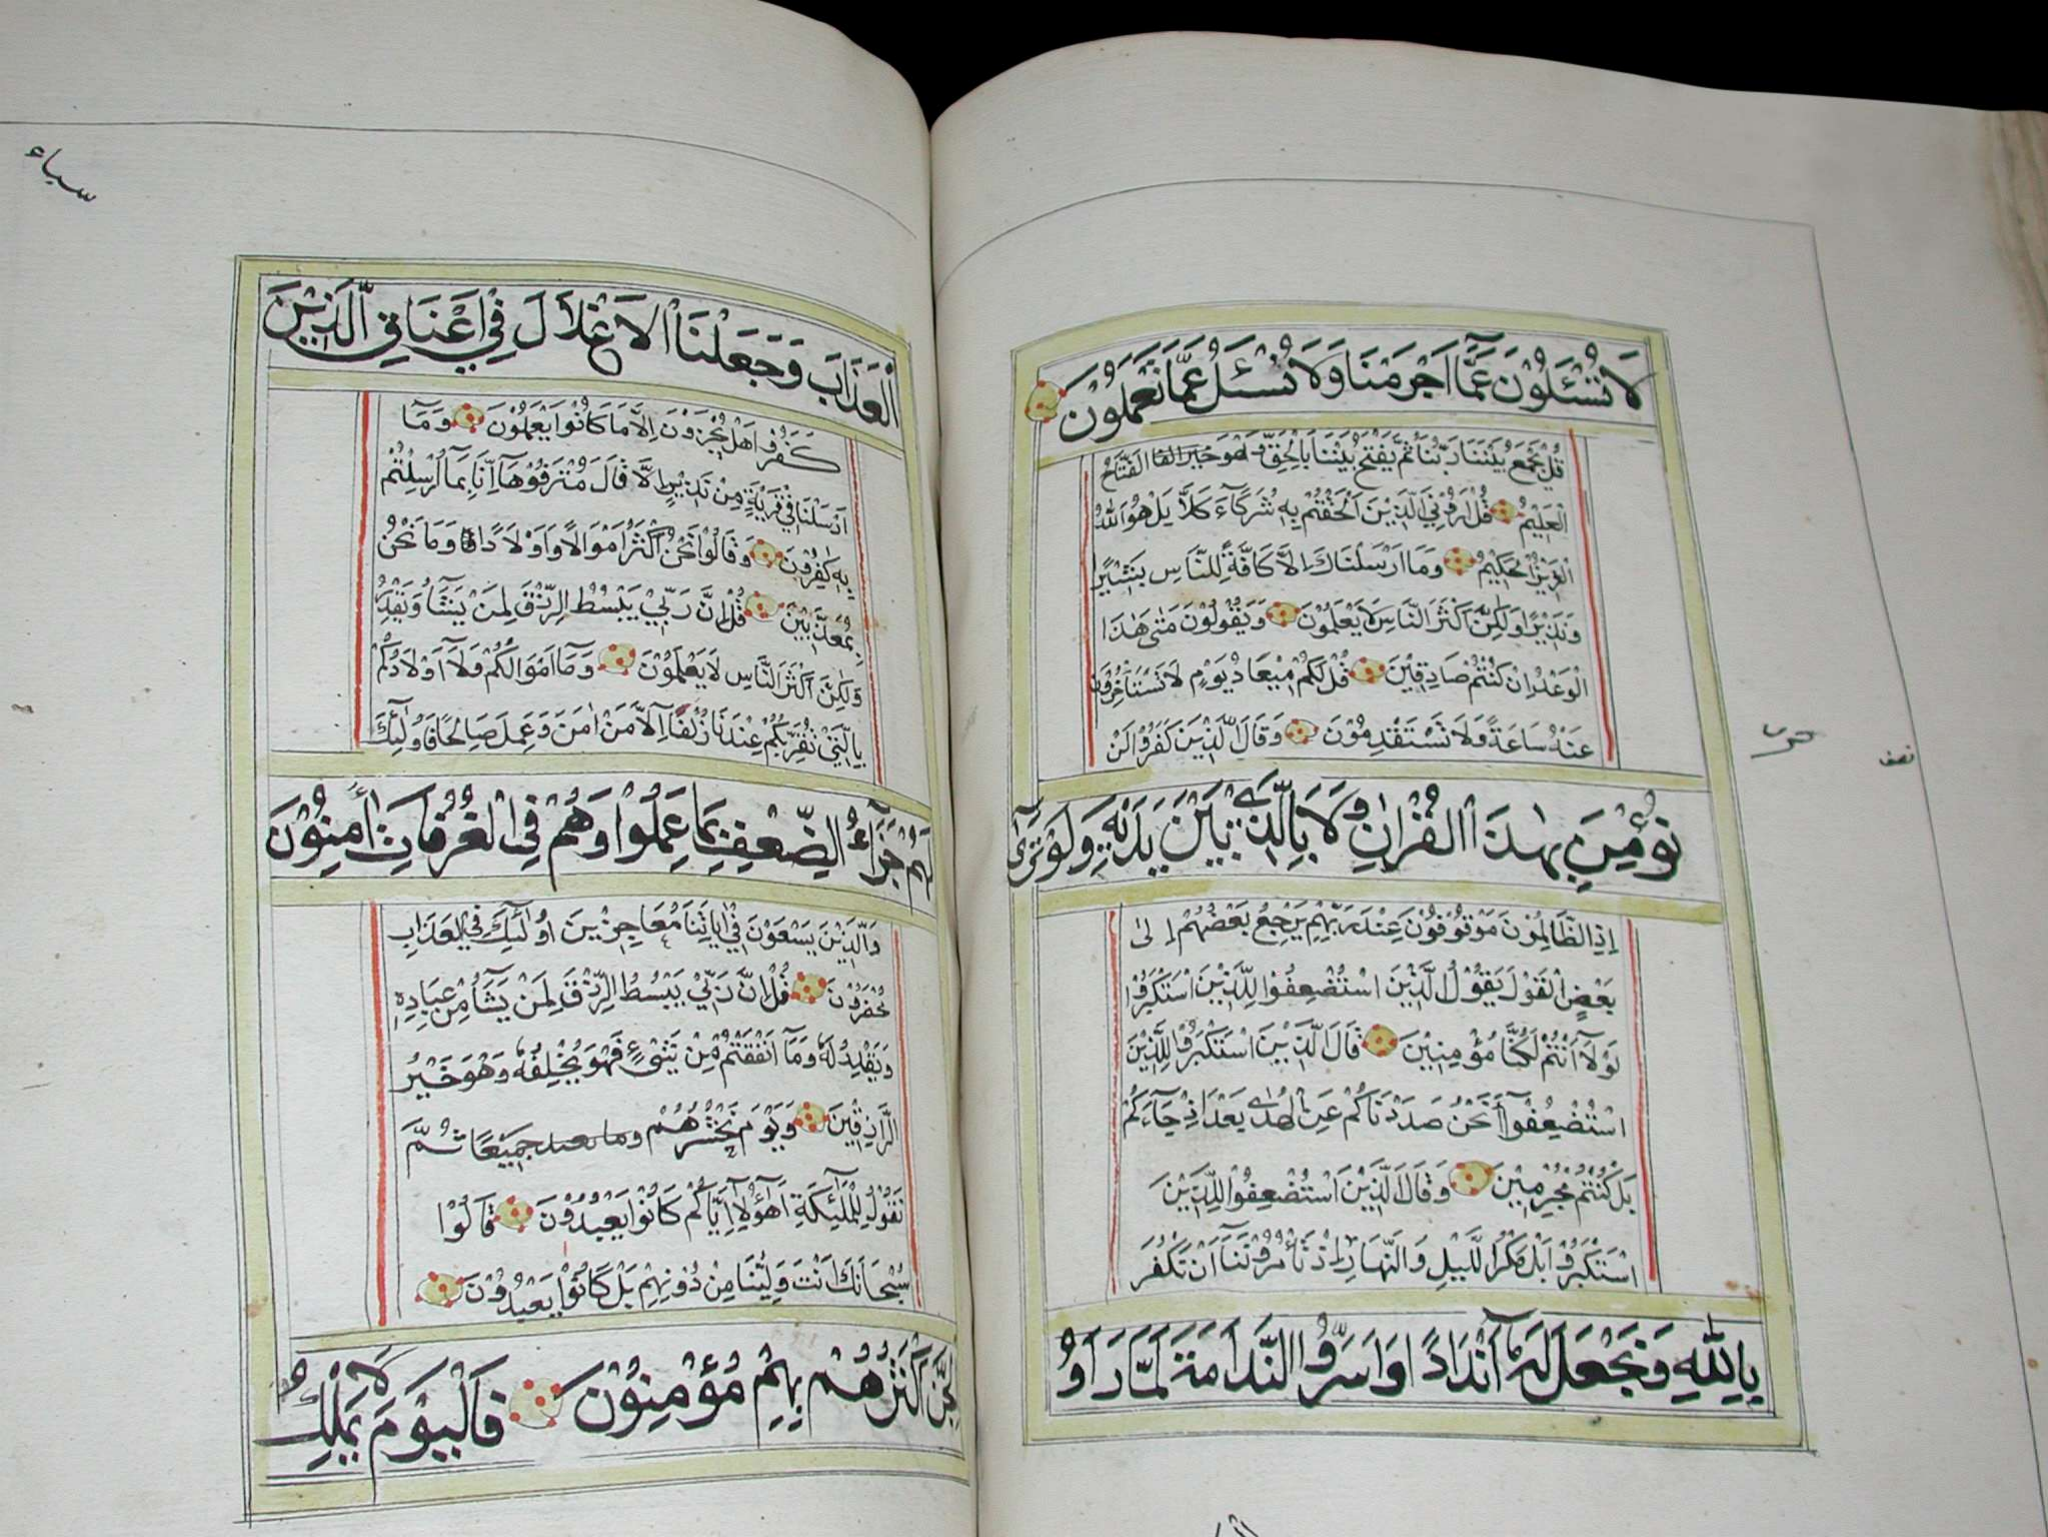 لَا تُسْئَلُوْنَ عَمَّآ اَجْرَمْنَا وَلَا نُسْئَلُ عَمَّا تَعْمَلُوْنَ
قُلْ يَجْمَعُ بَيْنَنَا رَبُّنَا ثُمَّ يَفْتَحُ بَيْنَنَا بِالْحَقِّ وَهُوَ الْفَتَّاحُ
الْعَلِيْمُ قُلْ اَرُوْنِيَ الَّذِيْنَ اَلْحَقْتُمْ بِهٖ شُرَكَآءَ كَلَّا بَلْ هُوَ اللّٰهُ
الْعَزِيْزُ الْحَكِيْمُ وَمَا اَرْسَلْنَاكَ اِلَّا كَافَّةً لِلنَّاسِ بَشِيْرًا
وَنَذِيْرًا وَلٰكِنَّ اَكْثَرَ النَّاسِ لَا يَعْلَمُوْنَ وَيَقُوْلُوْنَ مَتٰى هٰذَا
الْوَعْدُ اِنْ كُنْتُمْ صَادِقِيْنَ قُلْ لَكُمْ مِيْعَادُ يَوْمٍ لَا تَسْتَأْخِرُوْنَ
عَنْهُ سَاعَةً وَلَا تَسْتَقْدِمُوْنَ وَقَالَ الَّذِيْنَ كَفَرُوْا لَنْ
نُؤْمِنَ بِهٰذَا الْقُرْاٰنِ وَلَا بِالَّذِيْ بَيْنَ يَدَيْهِ وَلَوْ تَرٰٓى
اِذِ الظَّالِمُوْنَ مَوْقُوْفُوْنَ عِنْدَ رَبِّهِمْ يَرْجِعُ بَعْضُهُمْ اِلٰى
بَعْضٍ الْقَوْلَ يَقُوْلُ الَّذِيْنَ اسْتُضْعِفُوْا لِلَّذِيْنَ اسْتَكْبَرُوْا
لَوْلَآ اَنْتُمْ لَكُنَّا مُؤْمِنِيْنَ قَالَ الَّذِيْنَ اسْتَكْبَرُوْا لِلَّذِيْنَ
اسْتُضْعِفُوْٓا اَنَحْنُ صَدَدْنَاكُمْ عَنِ الْهُدٰى بَعْدَ اِذْ جَآءَكُمْ
بَلْ كُنْتُمْ مُجْرِمِيْنَ وَقَالَ الَّذِيْنَ اسْتُضْعِفُوْا لِلَّذِيْنَ
اسْتَكْبَرُوْا بَلْ مَكْرُ الَّيْلِ وَالنَّهَارِ اِذْ تَأْمُرُوْنَنَآ اَنْ نَكْفُرَ
بِاللّٰهِ وَنَجْعَلَ لَهٗٓ اَنْدَادًا وَاَسَرُّوا النَّدَامَةَ لَمَّا رَاَوُا
نصف
سباء
الْعَذَابَ وَجَعَلْنَا الْاَغْلَالَ فِيْ اَعْنَاقِ الَّذِيْنَ
كَفَرُوْا هَلْ يُجْزَوْنَ اِلَّا مَا كَانُوْا يَعْمَلُوْنَ وَمَآ
اَرْسَلْنَا فِيْ قَرْيَةٍ مِنْ نَذِيْرٍ اِلَّا قَالَ مُتْرَفُوْهَآ اِنَّا بِمَآ اُرْسِلْتُمْ
بِهٖ كٰفِرُوْنَ وَقَالُوْا نَحْنُ اَكْثَرُ اَمْوَالًا وَاَوْلَادًا وَمَا نَحْنُ
بِمُعَذَّبِيْنَ قُلْ اِنَّ رَبِّيْ يَبْسُطُ الرِّزْقَ لِمَنْ يَشَآءُ وَيَقْدِرُ
وَلٰكِنَّ اَكْثَرَ النَّاسِ لَا يَعْلَمُوْنَ وَمَآ اَمْوَالُكُمْ وَلَآ اَوْلَادُكُمْ
بِالَّتِيْ تُقَرِّبُكُمْ عِنْدَنَا زُلْفٰٓى اِلَّا مَنْ اٰمَنَ وَعَمِلَ صَالِحًا فَاُولٰٓئِكَ
لَهُمْ جَزَآءُ الضِّعْفِ بِمَا عَمِلُوْا وَهُمْ فِي الْغُرُفَاتِ اٰمِنُوْنَ
وَالَّذِيْنَ يَسْعَوْنَ فِيْٓ اٰيَاتِنَا مُعَاجِزِيْنَ اُولٰٓئِكَ فِي الْعَذَابِ
مُحْضَرُوْنَ قُلْ اِنَّ رَبِّيْ يَبْسُطُ الرِّزْقَ لِمَنْ يَشَآءُ مِنْ عِبَادِهٖ
وَيَقْدِرُ لَهٗ وَمَآ اَنْفَقْتُمْ مِنْ شَيْءٍ فَهُوَ يُخْلِفُهٗ وَهُوَ خَيْرُ
الرَّازِقِيْنَ وَيَوْمَ نَحْشُرُهُمْ وما يعبد جَمِيْعًا ثُمَّ
نَقُوْلُ لِلْمَلٰٓئِكَةِ اَهٰٓؤُلَآءِ اِيَّاكُمْ كَانُوْا يَعْبُدُوْنَ قَالُوْا
سُبْحَانَكَ اَنْتَ وَلِيُّنَا مِنْ دُوْنِهِمْ بَلْ كَانُوْا يَعْبُدُوْنَ
الْجِنَّ اَكْثَرُهُمْ بِهِمْ مُؤْمِنُوْنَ فَالْيَوْمَ لَا يَمْلِكُ